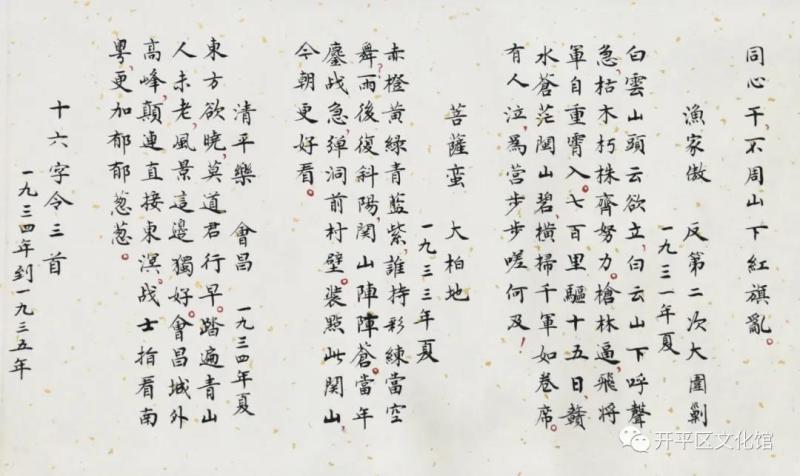 同心干,不周山下紅旗亂。
漁家傲 反第二次大圍剿
一九三一年夏
白雲山頭云欲立,白云山下呼聲
急,枯木朽株齊努力。槍林逼,飛將
軍自重霄入。七百里驅十五日,贛
水蒼茫閩山碧,橫掃千軍如卷席。
有人泣,爲營步步嗟何及!
菩薩蛮 大柏地
一九三三年夏
赤橙黃綠青藍紫,誰持彩練當空
舞,雨後復斜陽,関山陣陣蒼。當年
鏖战急,弹洞前村壁。裝點此関山,
今朝更好看。
清平樂 會昌 一九三四年夏
東方欲曉,莫道君行早。踏遍青山
人未老,風景這邊獨好。會昌城外
高峰,顛連直接東溟。战士指看南
粵,更加郁郁葱葱。
十六字令三首
一九三四年到一九三五年
开平区文化馆